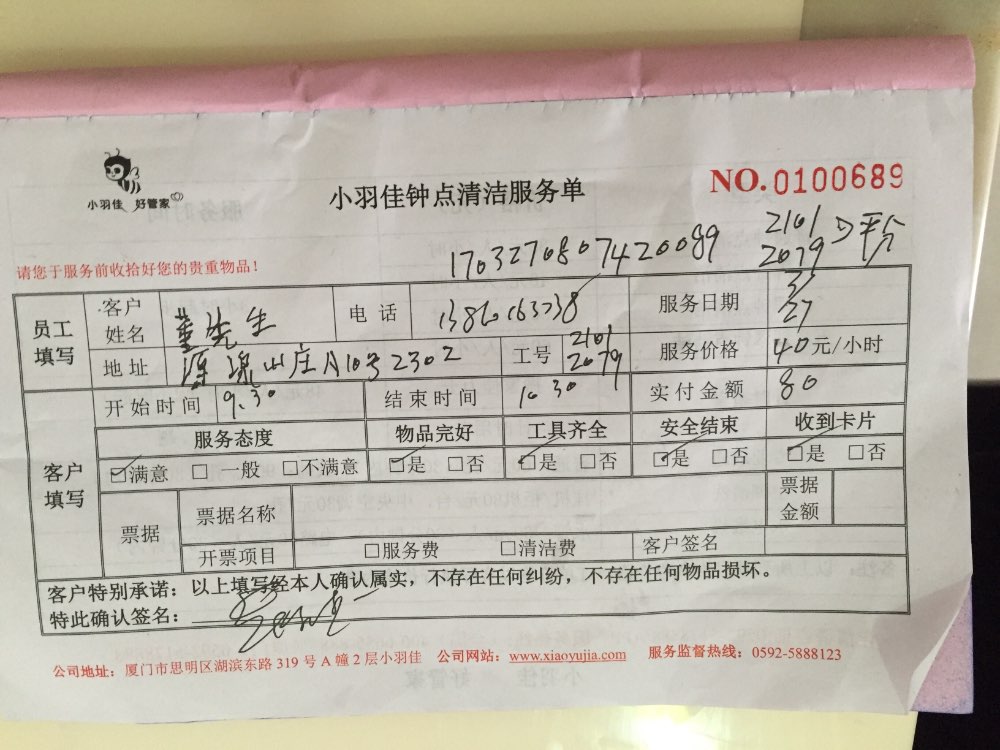 小羽佳 好管家
小羽佳钟点清洁服务单
NO.0100689
请您于服务前收拾好您的贵重物品！
1703270807420089
2101
2079
员工填写
客户姓名 董先生 电话 服务日期 3/27
地址 山庄A10号2302 工号 2101 2079 服务价格 40元/小时
客户填写
开始时间 9.30 结束时间 10.30 实付金额 80
服务态度 物品完好 工具齐全 安全结束 收到卡片
☑满意 □一般 □不满意 ☑是 □否 ☑是 □否 ☑是 □否 ☑是 □否
票据 票据名称 票据金额
开票项目 □服务费 □清洁费 客户签名
客户特别承诺：以上填写经本人确认属实，不存在任何纠纷，不存在任何物品损坏。
特此确认签名：
公司地址：厦门市思明区湖滨东路 319 号 A 幢 2 层小羽佳 公司网站：www.xiaoyujia.com 服务监督热线：0592-5888123